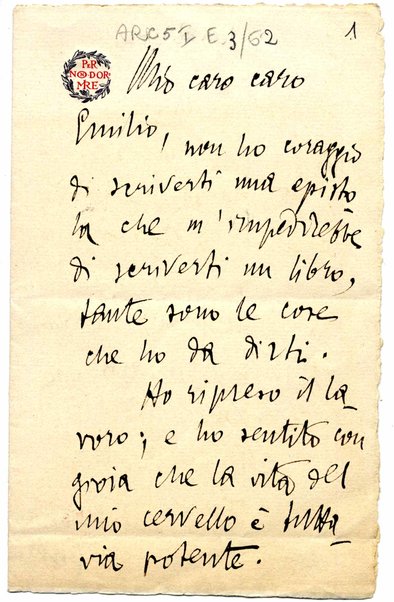 ARC 5 I E.3/62
1
PER
NON DOR
MIRE
Mio caro caro
Emilio, non ho coraggio
di scriverti una episto
la che m'impedirebbe
di scriverti un libro,
tante sono le cose
che ho da dirti.
Ho ripreso il la-
voro; e ho sentito con
gioia che la vita del
mio cervello è tutta
via potente.